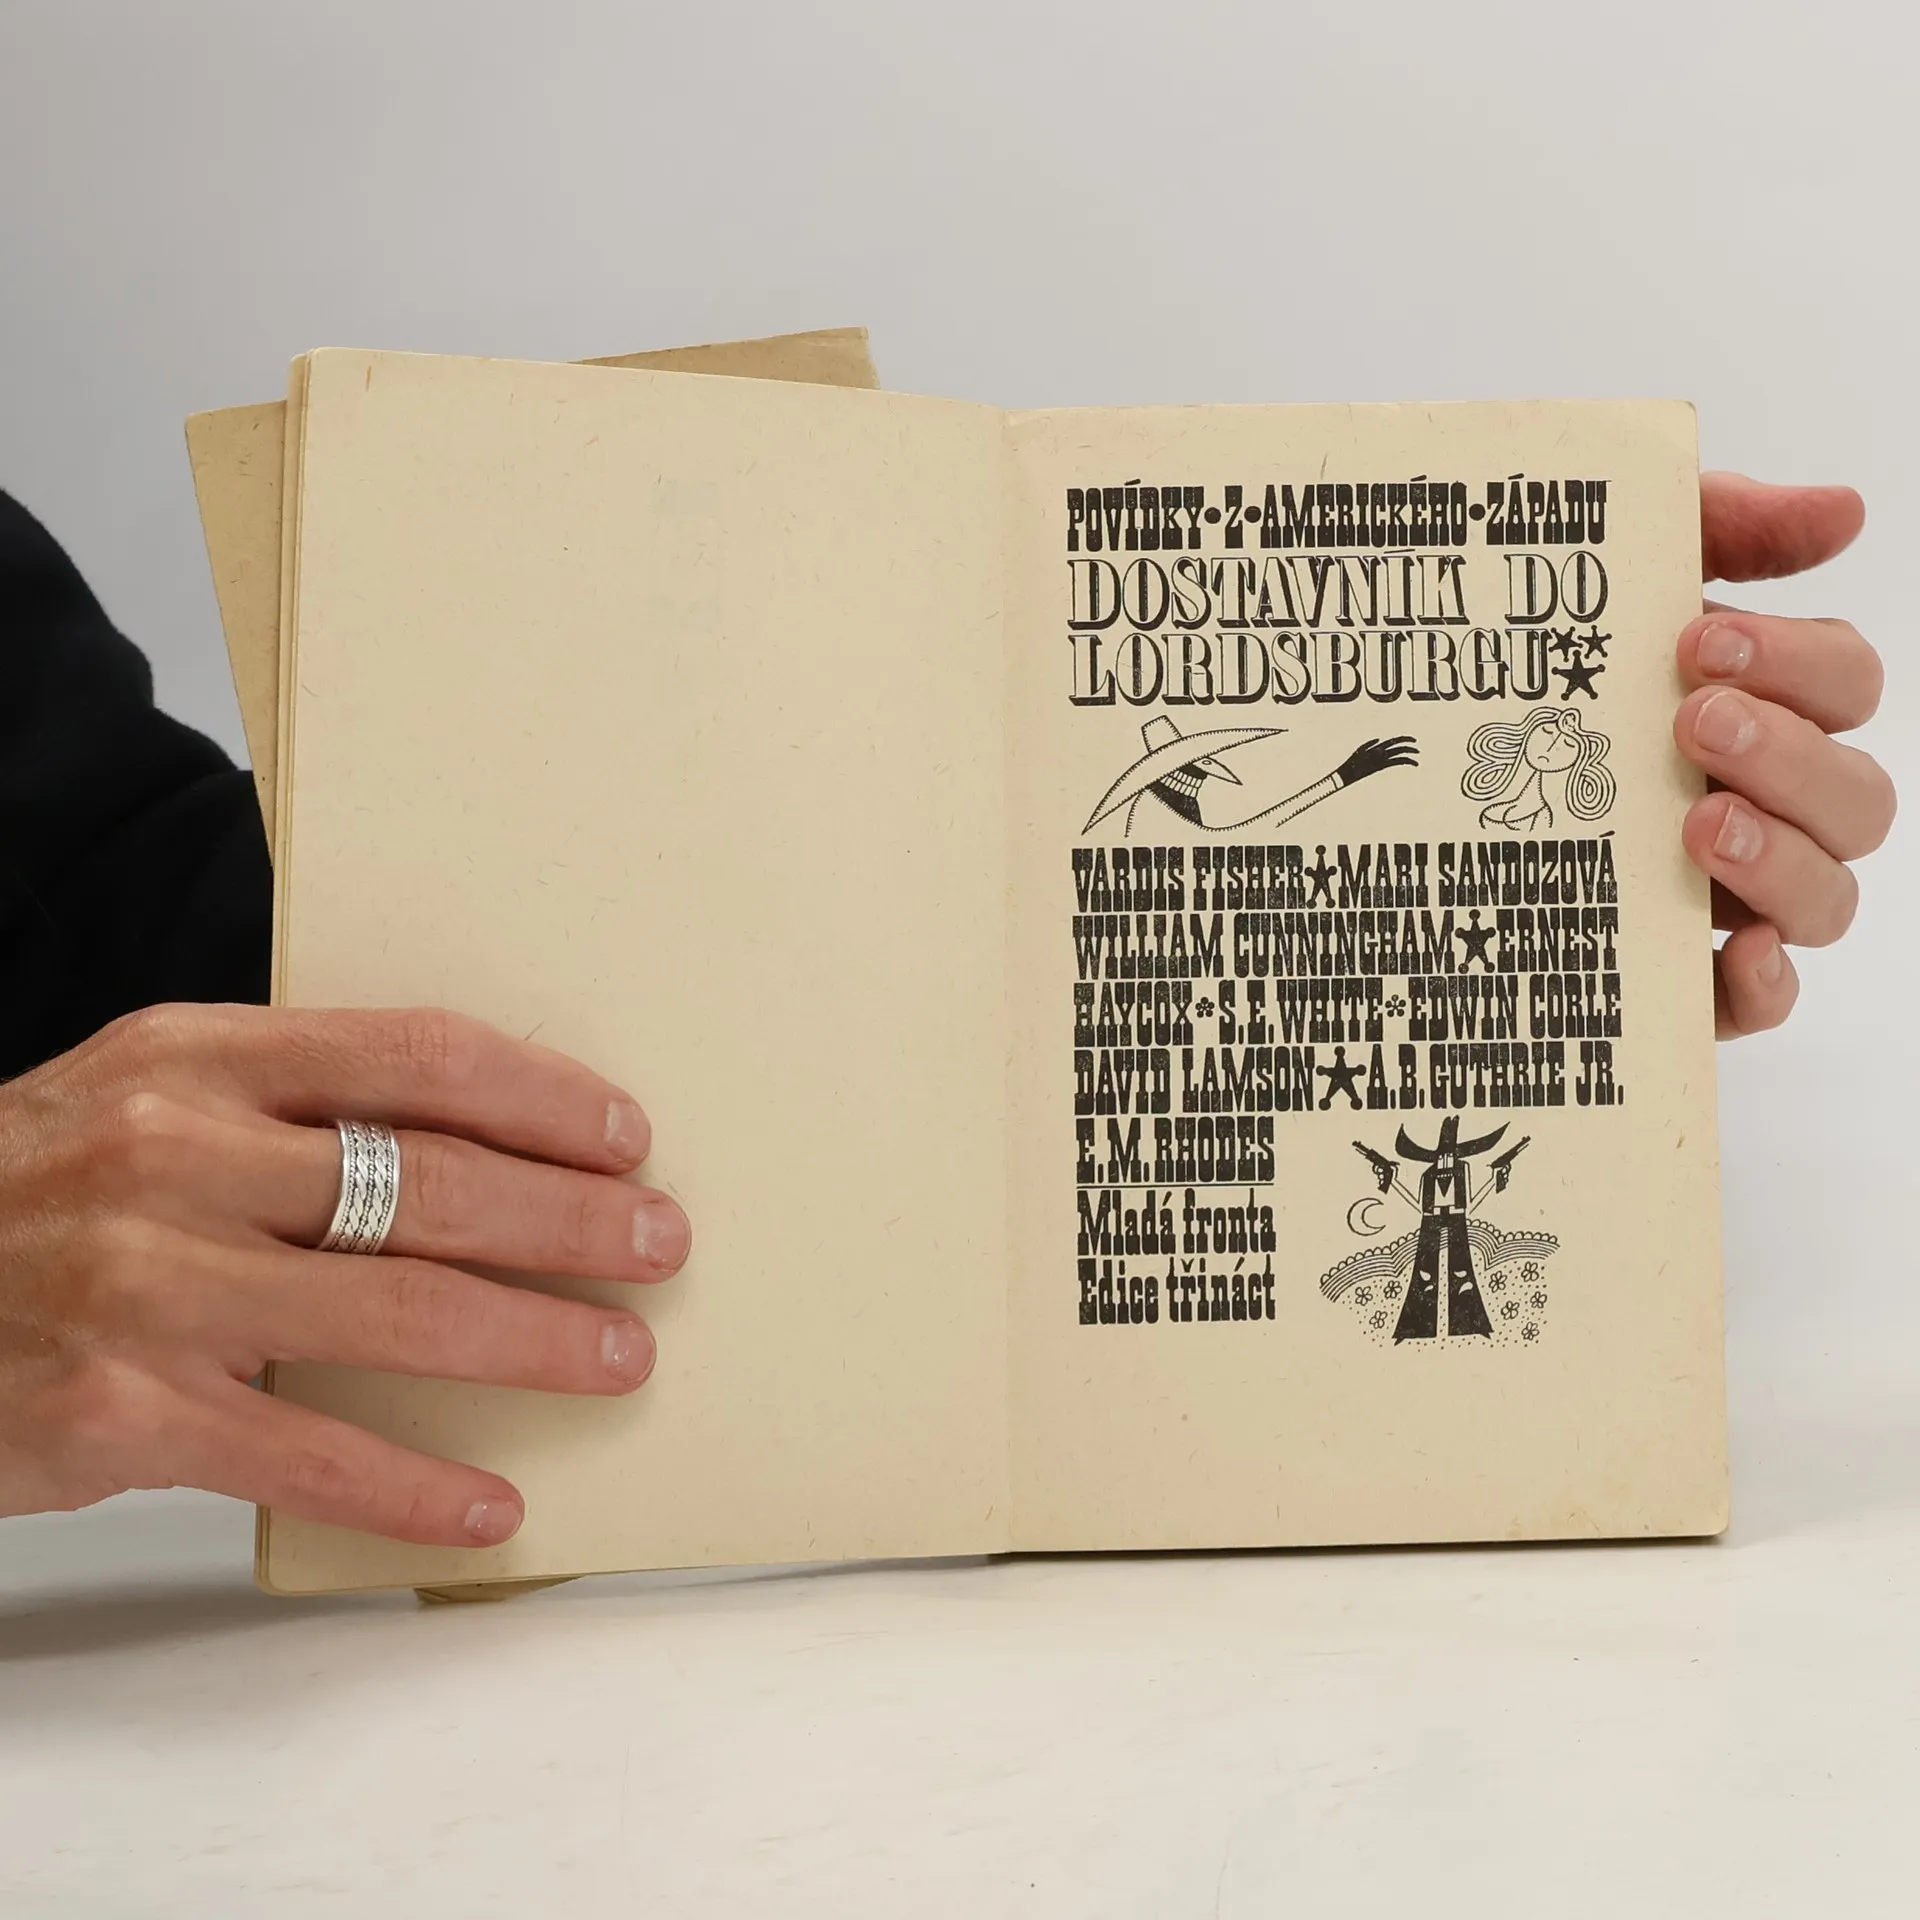 POVÍDKY•Z•AMERICKÉHO•ZÁPADU
DOSTAVNÍK DO
LORDSBURGU
VARDIS FISHER★MARI SANDOZOVÁ
WILLIAM CUNNINGHAM★ERNEST
HAYCOX*S.E.WHITE*EDWIN CORLE
DAVID LAMSON★A.B.GUTHRIE JR.
E.M.RHODES
Mladá fronta
Edice třináct